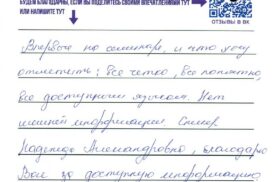 БУДЕМ БЛАГОДАРНЫ, ЕСЛИ ВЫ ПОДЕЛИТЕСЬ СВОИМИ ВПЕЧАТЛЕНИЯМИ ТУТ
ИЛИ НАПИШИТЕ ТУТ
ОТЗЫВЫ В ВК
Впервые на семинаре, и что хочу
отметить: все четко, все понятно,
все доступным языком. Нет
лишней информации. Спикер
Надежда Александровна, благодарю
Вас за доступную информацию